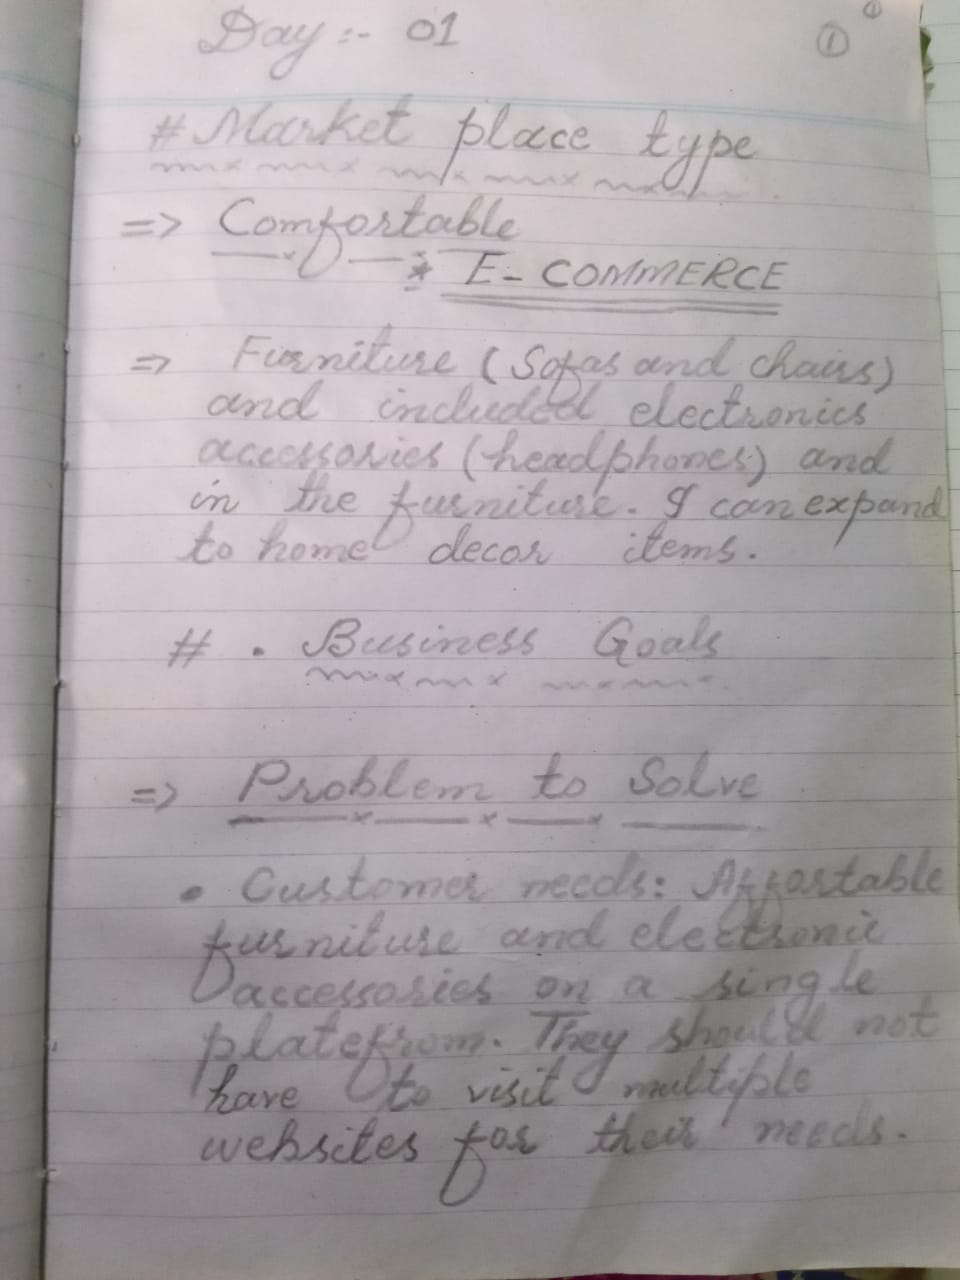 Day :- 01
①
①
# Market place type
=> Comfortable
* E-COMMERCE
=> Furniture (Sofas and chairs)
and included electronics
accessories (headphones) and
in the furniture. I can expand
to home decor items.
# . Business Goals
=> Problem to Solve
• Customer needs: Affortable
furniture and electronic
accessories on a single
platefrom. They should not
have to visit multiple
websites for their needs.